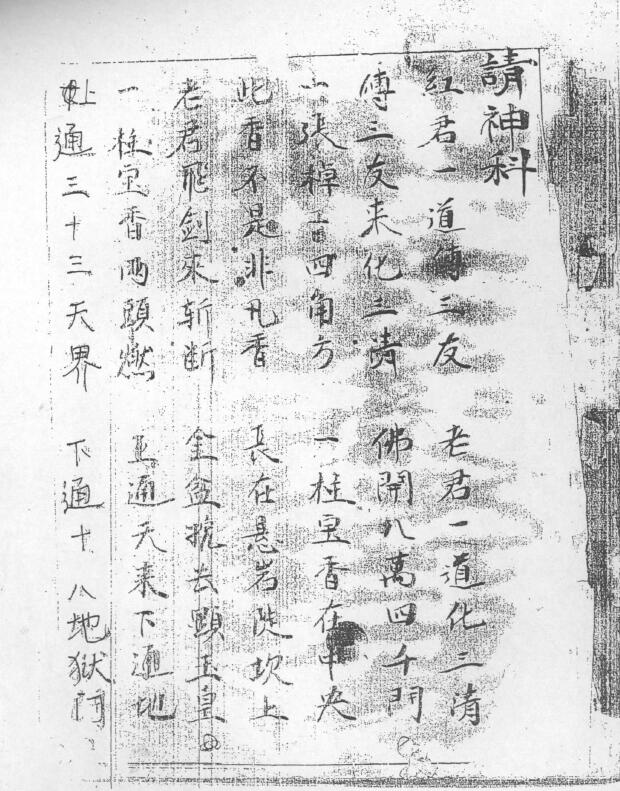 請神科
紅君一道傳三友 老君一道化三清
傳三友来化三清 佛開八萬四千門
一張棹子四角方 一柱宝香在中央
此香不是非凡香 長在悬岩陡坎上
老君飛剑來斩断 金盆抗去顕玉皇
一柱宝香两頭燃 上通天来下通地
上通三十三天界 下通十八地獄門